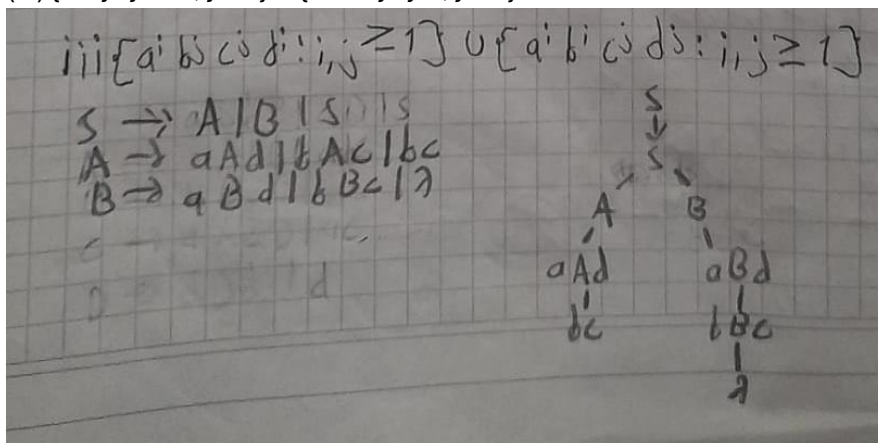 iii{aⁱ bʲ cʲ dⁱ : i,j ≥ 1} ∪ {aⁱ bⁱ cʲ dʲ : i,j ≥ 1}
S → A|B|S
A → aAd|bAc|bc
B → aBd|bBc|λ
S
↓
S
A B
aAd aBd
bc bBc
λ